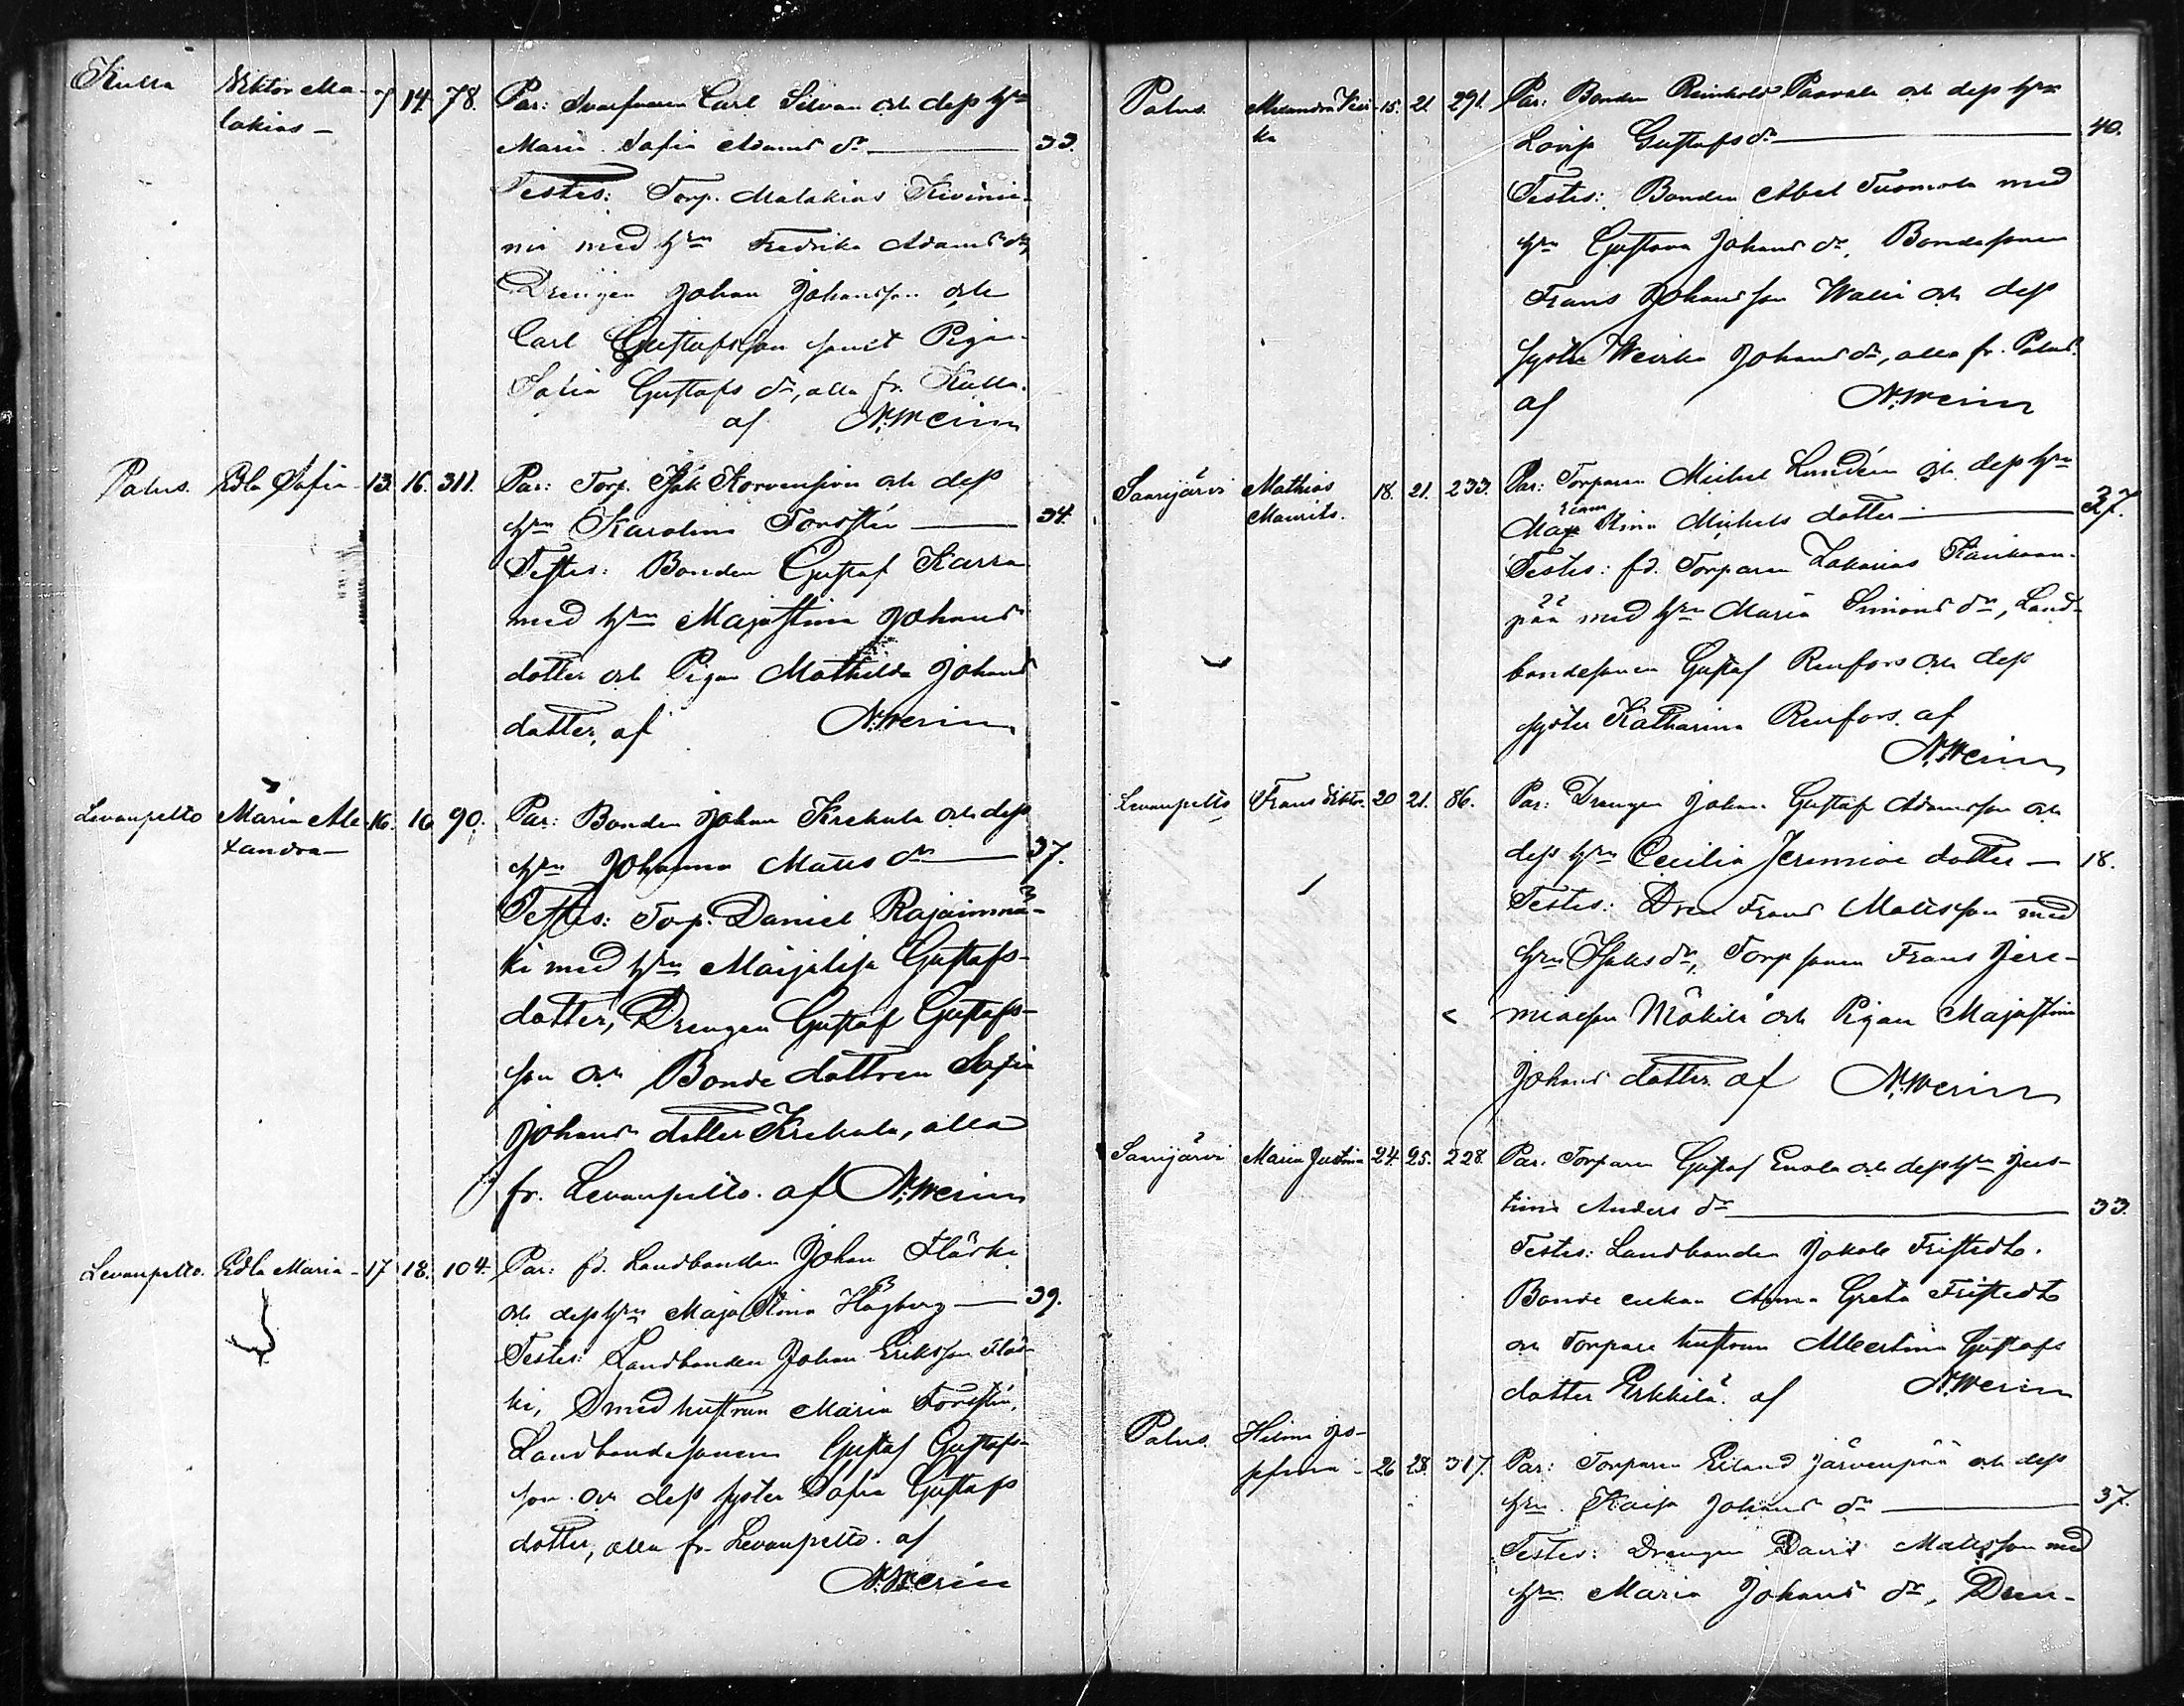 Kulla Viktor Ma- 7 14 78. Par: Carl Silvan och dess h:u
lakias — Maria Sofia Adams dr 33.
Testes: Torp. Malakias Kivinie-
mi med h:u Fredrika Adams dr,
Drengen Johan Johansson och
Carl Gustafsson samt Pigan
Sofia Gustafs dr, alla fr. Kulla.
af N. Merin
Palus. Edla Sofia 13. 16. 311. Par: Torp. Isak Korvensivu och dess
h:u Karolina Forstén 34.
Testes: Bonden Gustaf Karra
med h:u Majastina Johans
dotter och Pigan Mathilda Johans
dotter, af N. Merin
Levanpelto Maria Ale- 16. 16 90. Par: Bonden Johan Krekula och dess
xandra — h:u Johanna Matts dr 37.
Testes: Torp. Daniel Rajainmä-
ki med h:u Maijalisa Gustafs-
dotter, Drengen Gustaf Gustafs-
son och Bonde dottren Sofia
Johans dotter Krekula, alla
fr. Levanpelto. af N. Merin
Levanpelto. Edla Maria - 17 18. 104. Par: fd. Landbonden Johan Flärki
och dess h:u Maja Stina Hagberg 39.
Testes: Landbonden Johan Eriksson Flär-
ki, med hustrun Maria Forstén,
Landbondesonen Gustaf Gustafs-
son och dess syster Sofia Gustafs
dotter, alla fr. Levanpelto. af
N. Merin
Palus. Alexandra 15. 21. 291. Par: Bonden Reinhold Paavola och dess h:u
ka Lovisa Gustafs dr 40.
Testes: Bonden Abel Tuomola med
h:u Gustava Johans dr, Bondesonen
Frans Johansson Walli och dess
syster Johans dr, alla fr. Palus.
af N. Merin
Saarijärvi Mathias 18. 21. 233. Par: Torparen Michel Lundén och dess h:u
Maurits. Maja Stina Michels dotter 37.
Testes: fd. Torparen Zakarias
pää med h:u Maria Simons dr, Land-
bondesonen Gustaf Renfors och dess
syster Katharina Renfors. af
N. Merin
Levanpelto Frans Viktor 20 21. 86. Par: Drengen Johan Gustaf Adamsson och
dess h:u Cecilia Jeremiae dotter — 18.
Testes: Dren Frans Mattsson med
h:u Isaks dr, Torp sonen Frans Jere-
miasson Mäkilä och Pigan Majastina
Johans dotter af N. Merin
Saarijärvi Maria Justina 24. 25. 228. Par: Torparen Gustaf Enola och dess h:u Jus-
tina Anders dr 33.
Testes: Landbonden Jakob Fristedt.
Bonde enkan Anna Greta Fristedt
och Torpare hustrun Albertina Gustafs
dotter Erkkilä. af N. Merin
Palus. Hilma Jo-
sefina - 26 28. 317. Par: Torparen Erland Järvenpää och dess
h:u Kaisa Johans dr 37.
Testes: Drengen David Mattsson med
h:u Maria Johans dr, Dren-